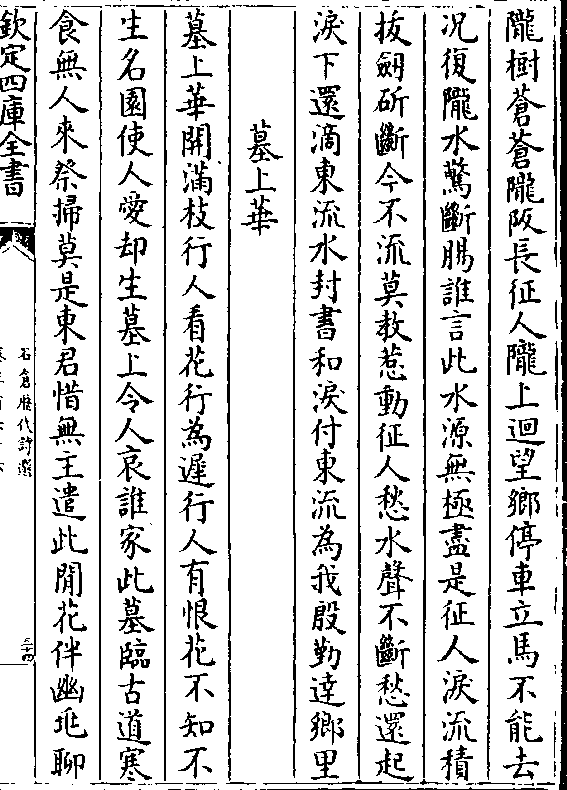 隴樹蒼蒼隴阪長征人隴上迴望鄉停車立馬不能去
况復隴水驚斷腸誰言此水源無極盡是征人淚流積
拔劒斫斷今不流莫教惹動征人愁水聲不斷愁還起
淚下還滴東流水封書和淚付東流為我殷勤達鄉里
墓上華
墓上華開滿枝行人看花行為遲行人有恨花不知不
生名園使人愛却生墓上令人哀誰家此墓臨古道寒
食無人來祭掃莫是東君惜無主遣此閒花伴幽兆聊
欽定四庫全書
石倉歷代詩選
三十四